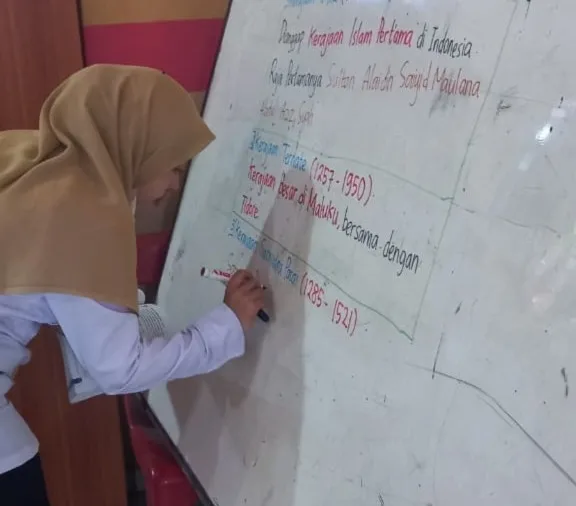 Dianggap Kerajaan Islam Pertama di Indonesia
Raja Pertamanya Sultan Alaidin Saiyid Maulana
Abdul Aziz Syah
2 Kerajaan Ternate (1257-1950).
Kerajaan Besar di Maluku, bersama dengan
Tidore
3 Kerajaan Samudra Pasai (1285-1521)